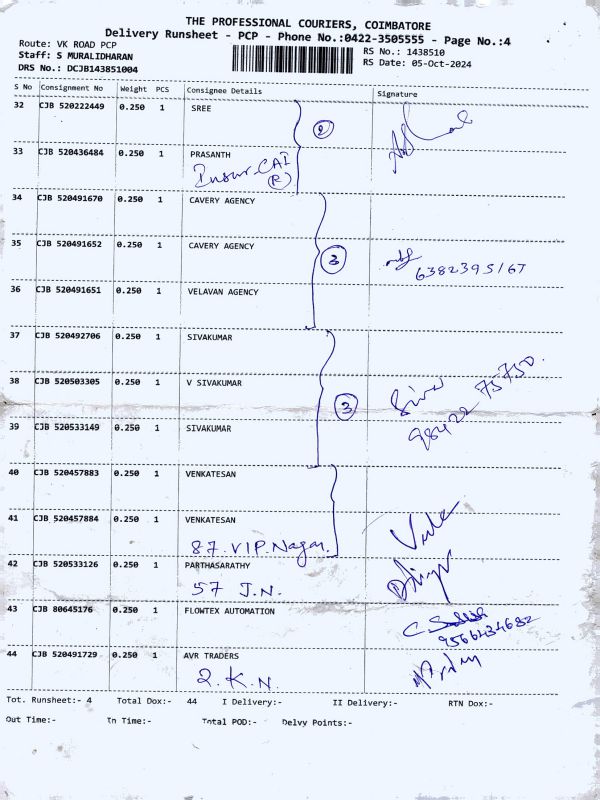 THE PROFESSIONAL COURIERS, COIMBATORE
Delivery Runsheet - PCP - Phone No.:0422-3505555 - Page No.:4
Route: VK ROAD PCP
RS No.: 1438510
Staff: S MURALIDHARAN
RS Date: 05-Oct-2024
DRS No.: DCJB143851004
S No Consignment No Weight PCS Consignee Details Signature
32 CJB 520222449 0.250 1 SREE
2
33 CJB 520436484 0.250 1 PRASANTH
(R)
34 CJB 520491670 0.250 1 CAVERY AGENCY
35 CJB 520491652 0.250 1 CAVERY AGENCY
3
6382395167
36 CJB 520491651 0.250 1 VELAVAN AGENCY
37 CJB 520492706 0.250 1 SIVAKUMAR
38 CJB 520503305 0.250 1 V SIVAKUMAR
3 Siva
98422 75750.
39 CJB 520533149 0.250 1 SIVAKUMAR
40 CJB 520457883 0.250 1 VENKATESAN
41 CJB 520457884 0.250 1 VENKATESAN
87. V.I.P. Nagar.
42 CJB 520533126 0.250 1 PARTHASARATHY
57 J.N.
43 CJB 80645176 0.250 1 FLOWTEX AUTOMATION
9566434682
44 CJB 520491729 0.250 1 AVR TRADERS
2. K. N.
Tot. Runsheet:- 4 Total Dox:- 44 I Delivery:- II Delivery:- RTN Dox:-
Out Time:- In Time:- Total POD:- Delvy Points:-